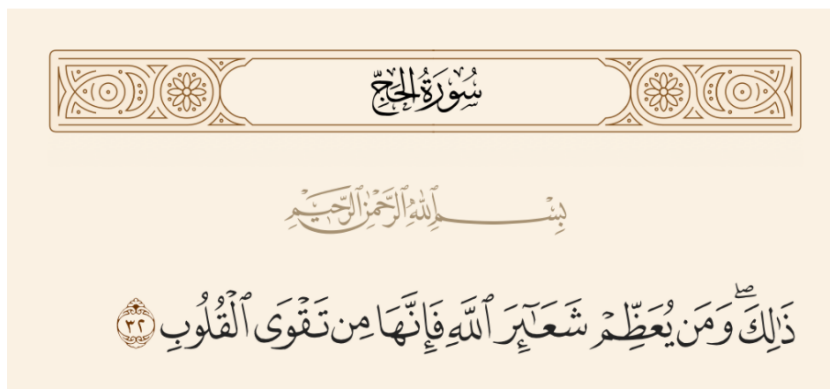 سُورَةُ الحَجِّ
بِسْمِ ٱللَّهِ ٱلرَّحْمَٰنِ ٱلرَّحِيمِ
ذَٰلِكَۖ وَمَن يُعَظِّمْ شَعَـٰٓئِرَ ٱللَّهِ فَإِنَّهَا مِن تَقْوَى ٱلْقُلُوبِ ٣٢